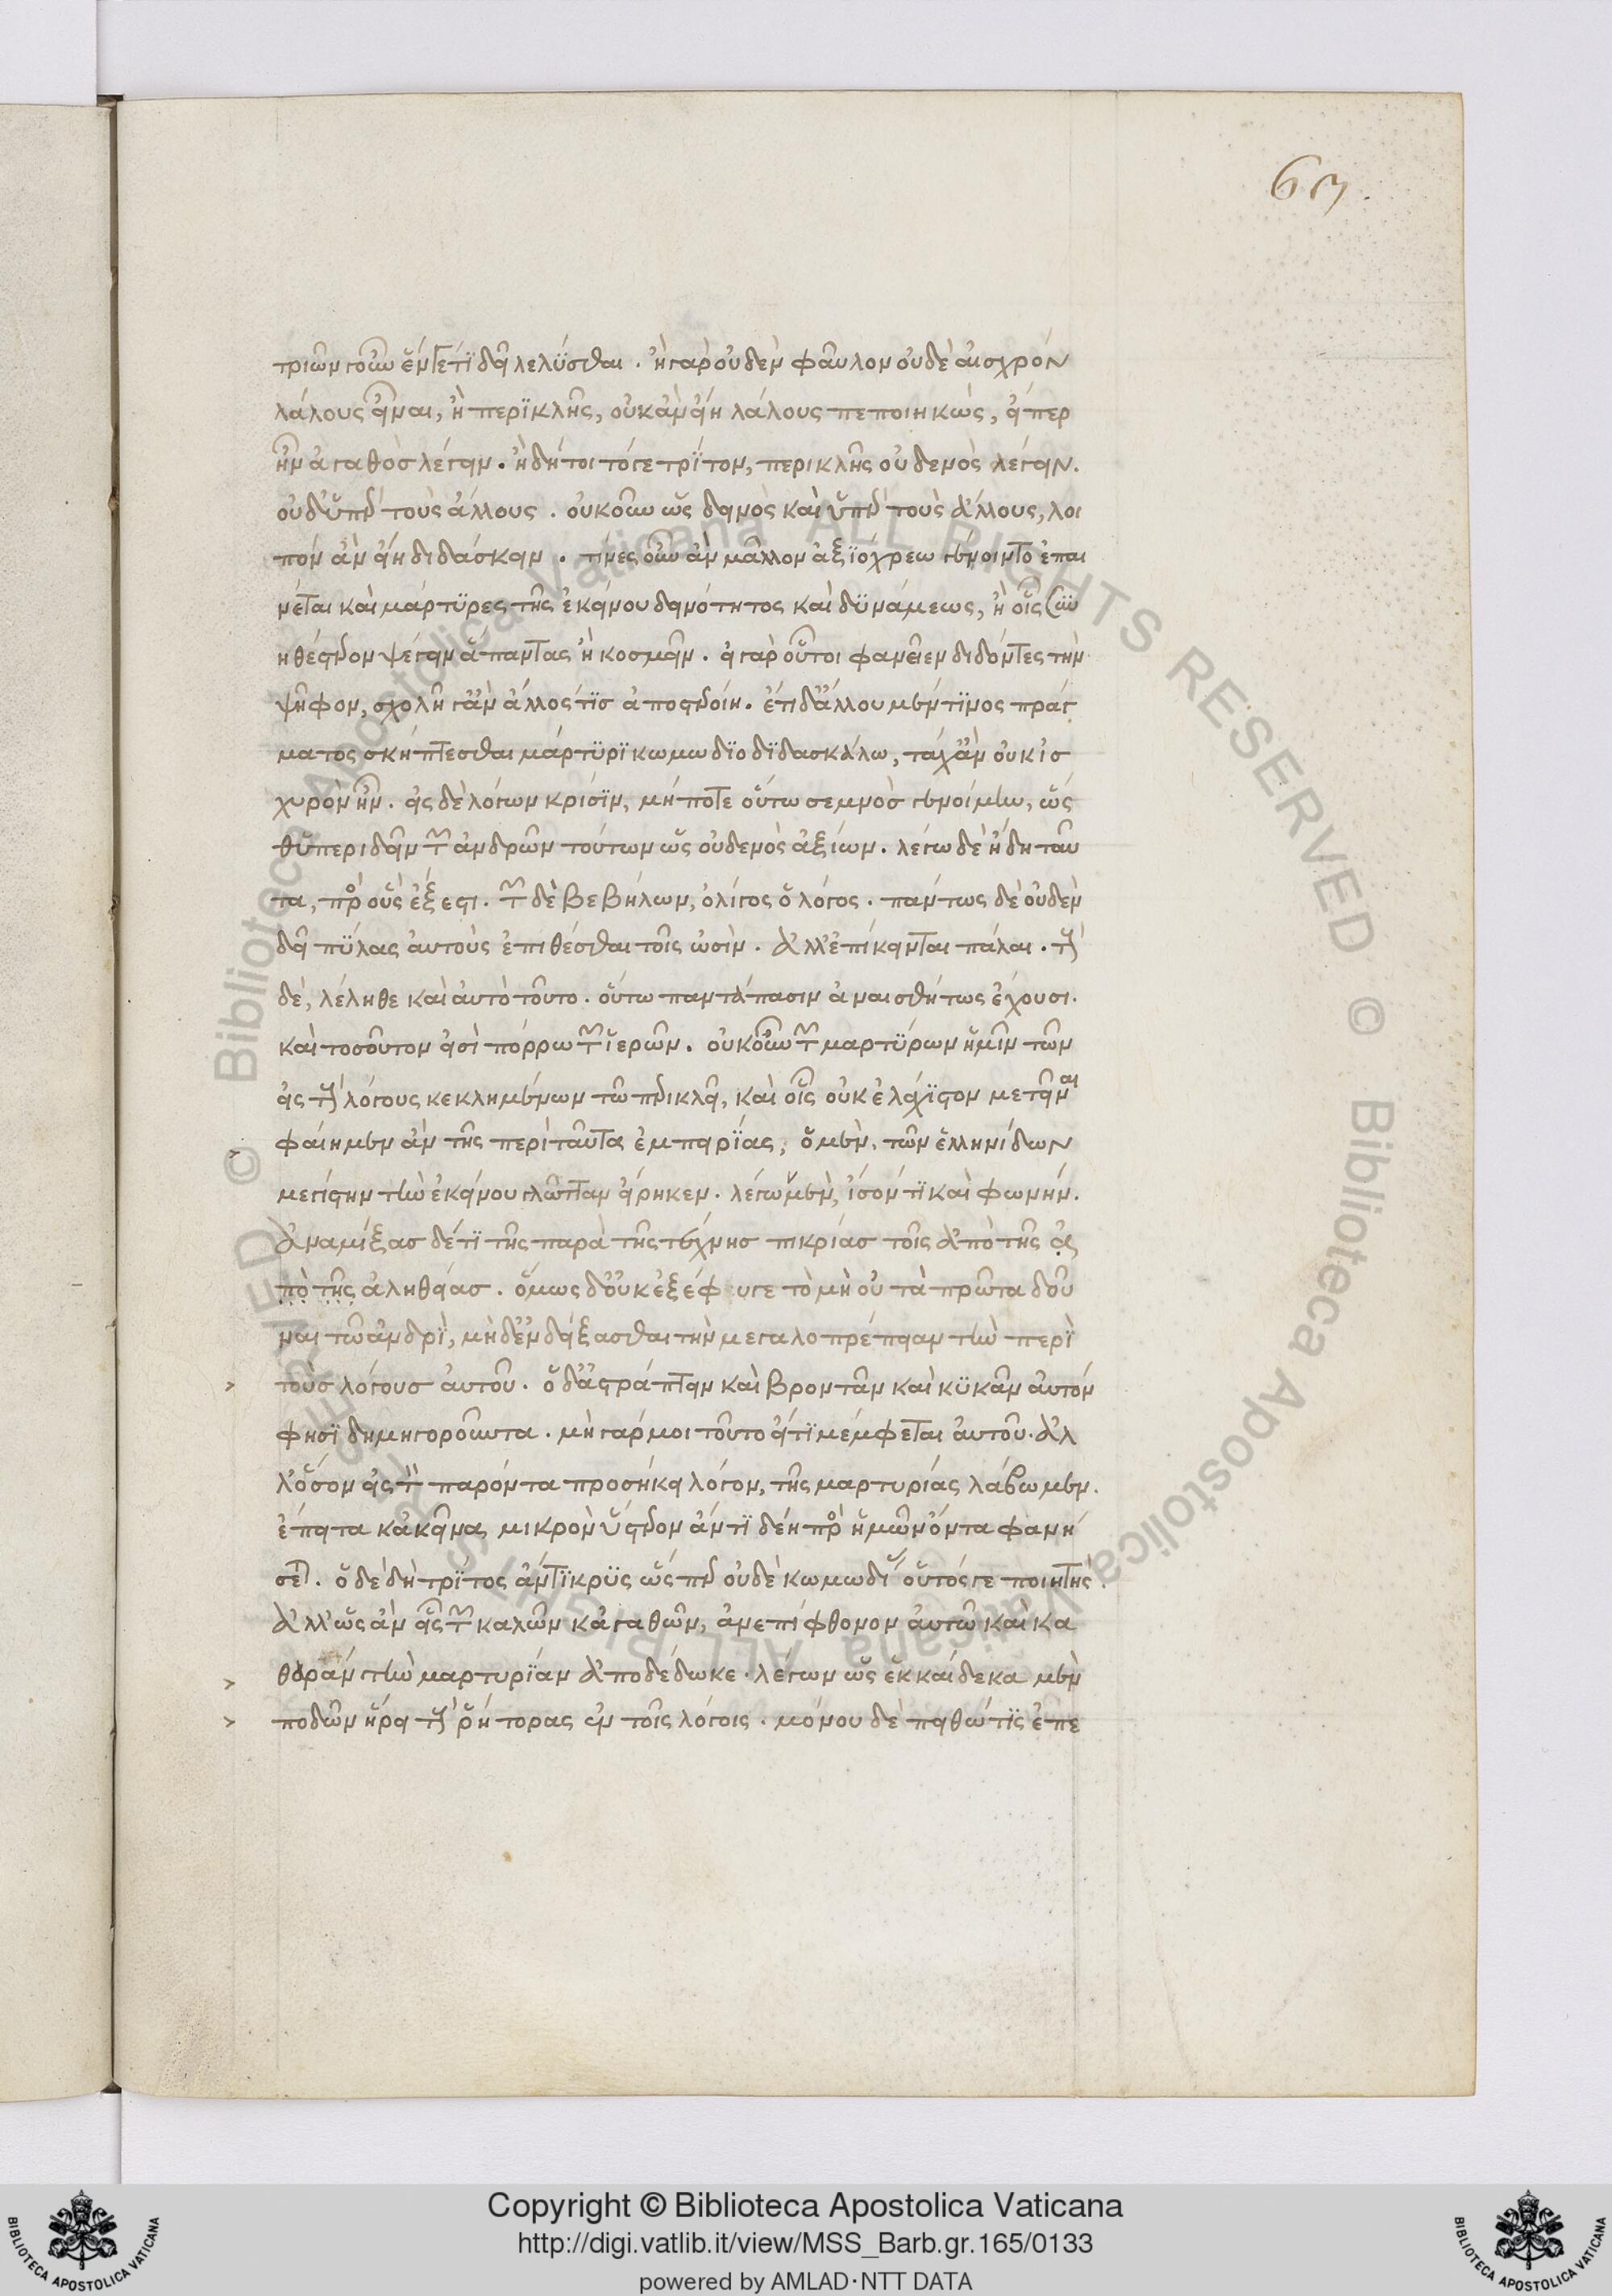 67.
τριῶν γοῦν ἕν γέ τι δεῖ λελύσθαι. ἢ γὰρ οὐδὲν φαῦλον οὐδὲ αἰσχρὸν
λάλους εἶναι, ἢ περικλῆς, οὐκ ἂν εἴη λάλους πεποιηκὼς, εἴπερ
ἦν ἀγαθὸς λέγειν. ἢ δή τοι τό γε τρίτον, περικλῆς οὐ δεινὸς λέγειν.
οὐδ' ὑπὲρ τοὺς ἄλλους. οὐκοῦν ὡς δεινὸς καὶ ὑπὲρ τοὺς ἄλλους, λοι
πὸν ἂν εἴη διδάσκειν. τίνες οὖν ἂν μᾶλλον ἀξιόχρεω γένοιντο ἐπαι
νέται καὶ μάρτυρες τῆς ἐκείνου δεινότητος καὶ δυνάμεως, ἢ οἷς συν
ηθέστερον ψέγειν ἅπαντας ἢ κοσμεῖν. εἰ γὰρ οὗτοι φανεῖεν διδόντες τὴν
ψῆφον, σχολῇ γ' ἂν ἄλλός τις ἀποστεροίη. ἔτι δ' ἄλλου μέν τινος πράγ
ματος σκήπτεσθαι μάρτυρι κωμωδιοδιδασκάλω, τάχ' ἂν οὐκ ἰσ
χυρὸν ἦν. εἰς δὲ λόγων κρίσιν, μή ποτε οὕτω σεμνὸς γενοίμην, ὥς
θ' ὑπεριδεῖν τῶν ἀνδρῶν τούτων ὡς οὐδενὸς ἀξίων. λέγω δὲ ἤδη ταῦ
τα, πρὸς οὓς ἔξεστι. τῶν δὲ βεβήλων, ὀλίγος ὁ λόγος. πάντως δὲ οὐδὲν
δεῖ πύλας αὐτοὺς ἐπιθέσθαι τοῖς ὠσίν. ἀλλ' ἐπίκεινται πάλαι. τοὺς
δὲ, λέληθε καὶ αὐτὸ τοῦτο. οὕτω παντάπασιν ἀναισθήτως ἔχουσι.
καὶ τοσοῦτον εἰσὶ πόρρω τῶν ἱερῶν. οὐκοῦν τῶν μαρτύρων ἡμῖν τῶν
εἰς τοὺς λόγους κεκλημένων τῶ περικλεῖ, καὶ οἷς οὐκ ἐλάχιστον μετεῖναι
φαίημεν ἂν τῆς περὶ ταῦτα ἐμπειρίας, ὁ μὲν, τῶν ἑλληνίδων
μεγίστην τὴν ἐκείνου γλῶτταν εἴρηκεν. λέγων μὲν, ἴσόν τι καὶ φωνήν.
ἀναμίξας δέ τι τῆς παρὰ τῆς τέχνης πικρίας τοῖς ἀπὸ τῆς ἀ
πὸ τῆς ἀληθείας. ὅμως δ' οὐκ ἐξέφυγε τὸ μὴ οὐ τὰ πρῶτα δοῦ
ναι τῶ ἀνδρὶ, μηδ' ἐνδείξασθαι τὴν μεγαλοπρέπειαν τὴν περὶ
τοὺς λόγους αὐτοῦ. ὁ δ' ἀστράπτειν καὶ βροντᾶν καὶ κυκᾶν αὐτόν
φησι δημηγοροῦντα. μὴ γάρ μοι τοῦτο εἴ τι μέμφεται αὐτοῦ. ἀλ
λ' ὅσον εἰς τὸν παρόντα προσήκει λόγον, τῆς μαρτυρίας λάβωμεν.
ἔπειτα κἀκεῖνα, μικρὸν ὕστερον ἄν τι δέη πρὸς ἡμῶν ὄντα φανή
σεται. ὁ δὲ δὴ τρίτος ἄντικρυς ὥσπερ οὐδὲ κωμωδίας οὗτός γε ποιητής.
ἀλλ' ὡς ἂν εἷς τῶν καλῶν κἀγαθῶν, ἀνεπίφθονον αὐτῶ καὶ κα
θαρὰν τὴν μαρτυρίαν ἀποδέδωκε. λέγων ὡς ἑκκαίδεκα μὲν
ποδῶν ἥρει τοὺς ῥήτορας ἐν τοῖς λόγοις. μόνου δὲ πειθώ τις ἐπε
© Biblioteca Apostolica Vaticana ALL RIGHTS RESERVED © Biblioteca Apostolica Vaticana ALL RIGHTS RESERVED
Copyright © Biblioteca Apostolica Vaticana
http://digi.vatlib.it/view/MSS_Barb.gr.165/0133
powered by AMLAD·NTT DATA
BIBLIOTECA APOSTOLICA VATICANA
BIBLIOTECA APOSTOLICA VATICANA